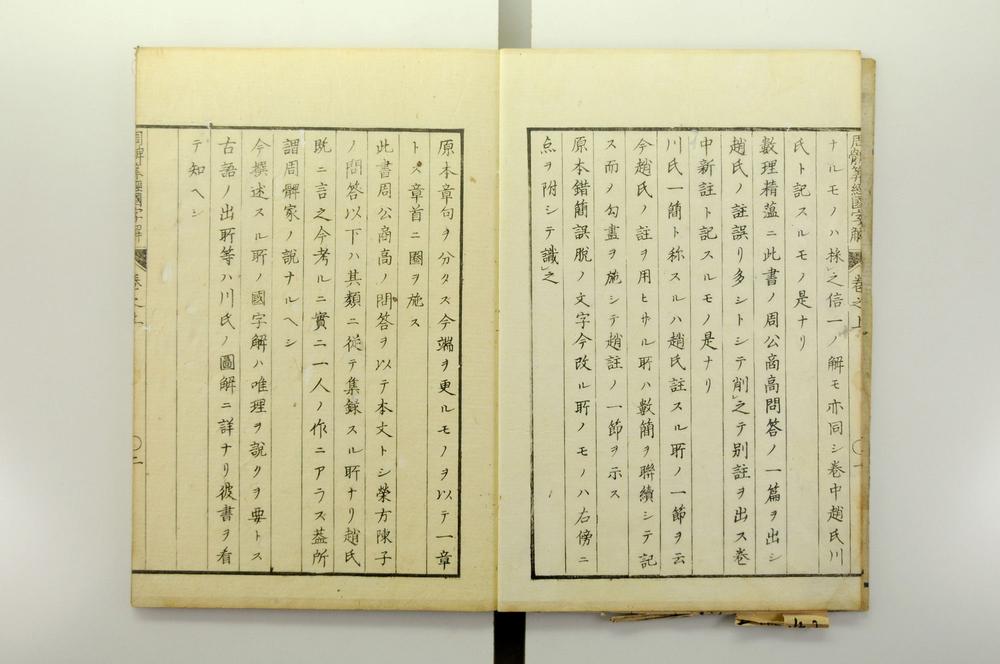 周髀算經國字解 卷之上
ナルモノハ採之信一ノ解モ亦同シ卷中趙氏川
氏ト記スルモノ是ナリ
數理精薀ニ此書ノ周公商高問答ノ一篇ヲ出シ
趙氏ノ註誤リ多シトシテ削之テ別註ヲ出ス卷
中新註ト記スルモノ是ナリ
川氏一簡ト称スルハ趙氏註スル所ノ一節ヲ云
今趙氏ノ註ヲ用ヒサル所ハ數簡ヲ聯續シテ記
ス而ノ勾畫ヲ施シテ趙註ノ一節ヲ示ス
原本錯簡誤脱ノ文字今改ル所ノモノハ右傍ニ
点ヲ附シテ識之
原本章句ヲ分タス今端ヲ更ルモノヲ以テ一章
トス章首ニ圈ヲ施ス
此書周公商高ノ問答ヲ以テ本文トシ榮方陳子
ノ問答以下ハ其類ニ從テ集録スル所ナリ趙氏
既ニ言之今考ルニ實ニ一人ノ作ニアラス蓋所
謂周髀家ノ說ナルヘシ
今撰述スル所ノ國字解ハ唯理ヲ說クヲ要トス
古語ノ出所等ハ川氏ノ圖解ニ詳ナリ彼書ヲ看
テ知ヘシ
周髀算經國字解 卷之上